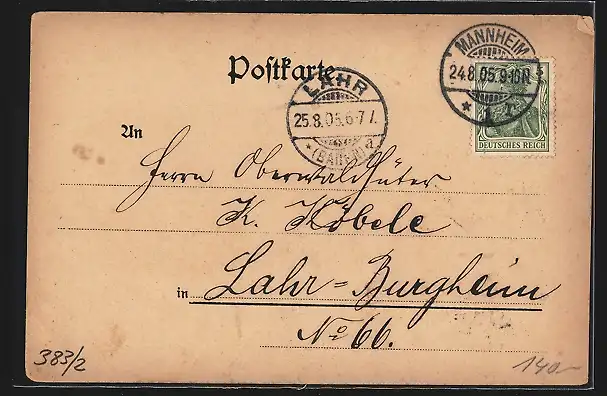 Postkarte
MANNHEIM
24.8.05.9-10N
* 1 z.
DEUTSCHES REICH
LAHR
25.8.05.6-7 V.
*(BADEN) a
An
Herrn Oberwaldhüter
K. Köbele
in Lahr=Burgheim
No 66.
383/2
140-